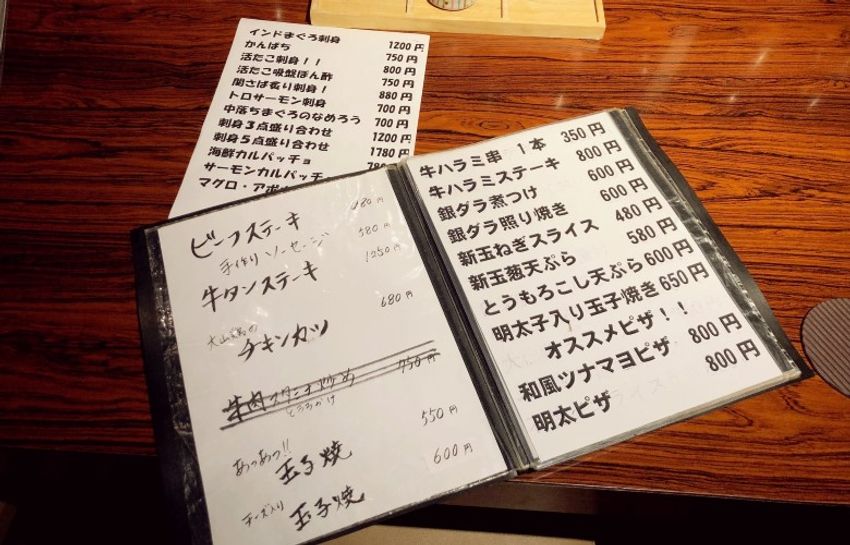 インドまぐろ刺身 1200円
かんぱち 750円
活たこ刺身！！ 800円
活たこ吸盤ぽん酢 750円
関さば炙り刺身！ 880円
トロサーモン刺身 700円
中落ちまぐろのなめろう 700円
刺身３点盛り合わせ 1200円
刺身５点盛り合わせ 1780円
海鮮カルパッチョ 780
サーモンカルパッチョ
マグロ・アボ
ビーフステーキ 円
手作りソーセージ 580円
牛タンステーキ 1250円
大山鶏の
チキンカツ 680円
牛肉スタミナ炒め 750円
とろろかけ
あっつあつ!!
玉子焼 550円
チーズ入り 玉子焼 600円
牛ハラミ串 １本 350円
牛ハラミステーキ 800円
銀ダラ煮つけ 600円
銀ダラ照り焼き 600円
新玉ねぎスライス 480円
新玉葱天ぷら 580円
とうもろこし天ぷら 600円
明太子入り玉子焼き 650円
オススメピザ！！
和風ツナマヨピザ 800円
明太ピザ 800円